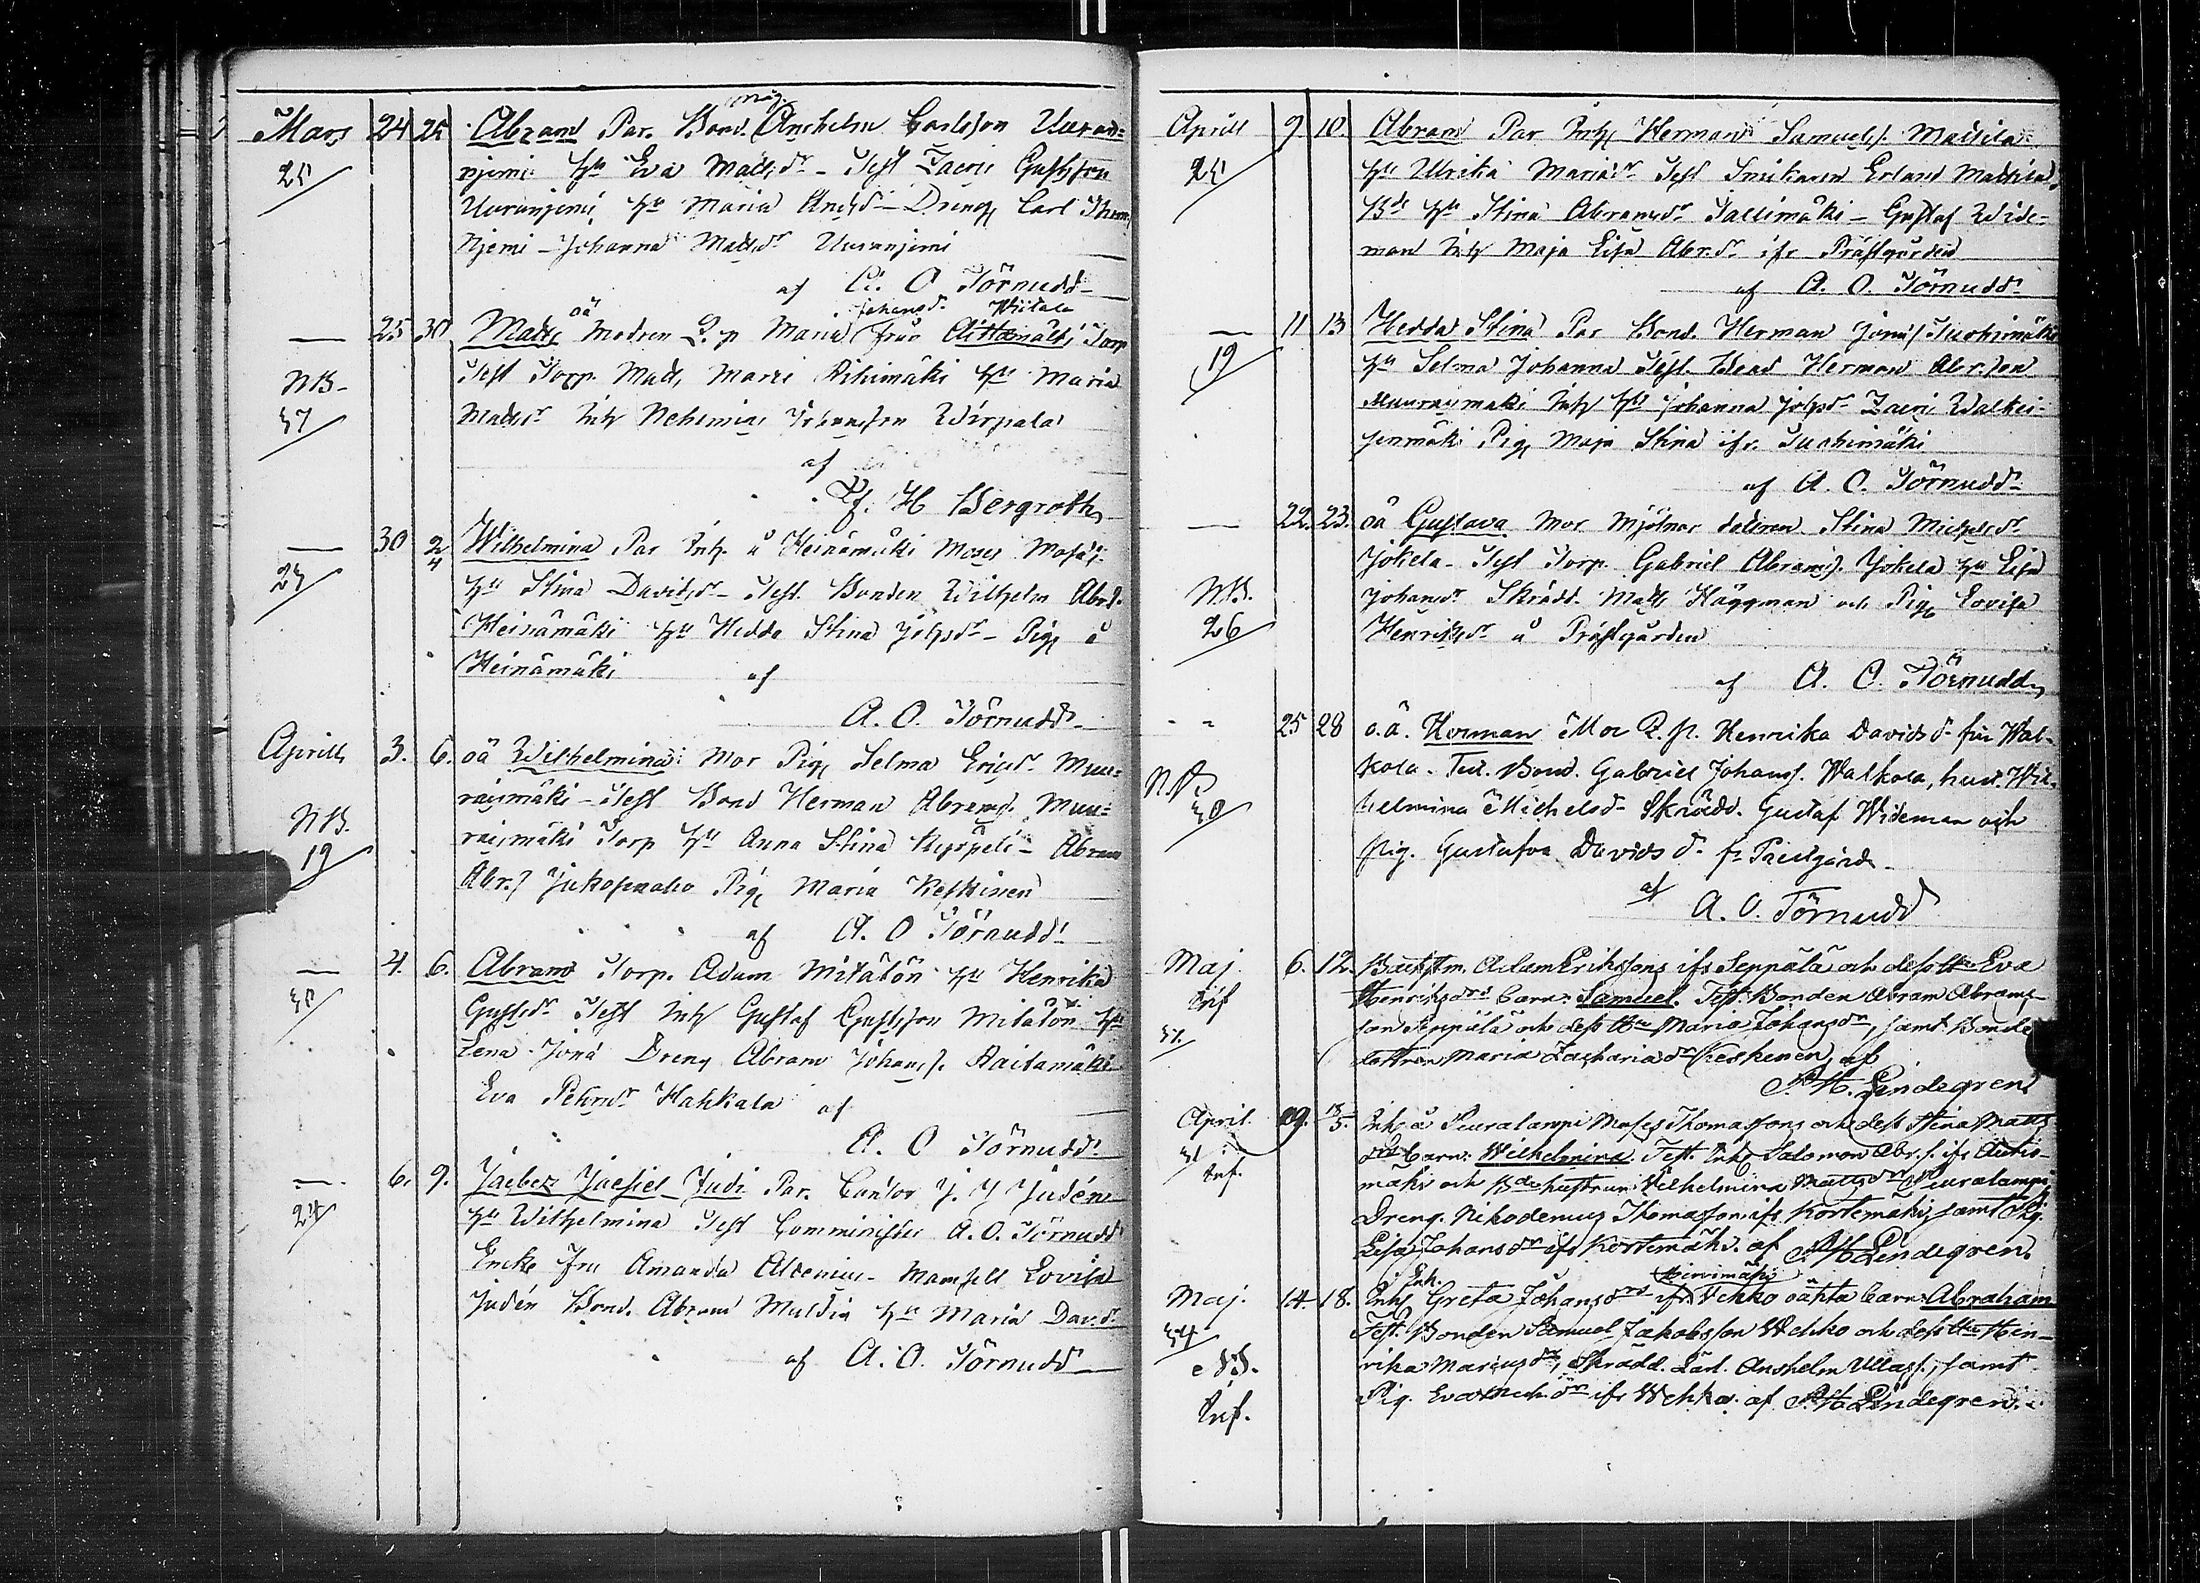 Mars 24 25 Abram Par. Bond. Anshelm Carlsson Uuran=
25 njemi hu Eva Matsdr - Test Zacris Gustafsson
Uuranjemi, hu Maria Andsdr - Dreng Carl
njemi - Johanna Matsdr Uuranjemi
af A. O Törnudd
Johansdr Wiitala
— 25 30 oä Matts Modren Q. p Maria från Aittomäki Torp
NB. Test Torp. Matts Marci Riihimäki hu Maria
37 Matsdr Inh Nehemias Johansson Wirpala
af
H Bergroth
— 30 2/4 Wilhelmina Par Inh. å Heinämäki Moses Mosäs:
27 hu Stina Davidsdr - Test. Bonden Wilhelm Abrs.
Heinämäki hu Hedda Stina Johsdr - Pig å
Heinämäki af
A. O. Törnudd
Aprill 3. 6. oä Wilhelmina: Mor Pig Selma Ericsdr Muu=
raismäki - Test Bond Herman Abrams. Muu=
NB. raismäki Torp hu Anna Stina - Abram
19 Abr.s Pig Maria Keskinen
af A. O Törnudd
— 4. 6. Abram Torp. Adam Mitätön hu Henrika
30 Gustsdr Test Inh Gustaf Gustsson Mitätön hu
Lena Jonä Dreng Abram Johans. Raitamäki
Eva Pehrsdr Hahkala af
A. O Törnudd
— 6. 9. Jaebez Jaesiel Judi Par. Cantor J. J Judén
24 hu Wilhelmina Test Comminister A. O. Törnudd
Encke Fru Amanda Alcenius - Mamsell Lovisa
Judén Bond. Abram Muldia hu Maria Davdr
af A. O. Törnudd
Aprill 9 10. Abram Par Inh Herman Samuels.
25 hu Ulrika Mariädr Test Snickaren Erland Mattila
Bde hu Stina Abramsdr Sallimäki - Gustaf Wide=
man Inh Maja Lisa Abr.dr ifr Prästgården
af A. O. Törnudd
— 11 13 Hedda Stina Par Bond. Herman Jonäs
19 hu Selma Johanna Test. Bond Herman Abr.son
Muuraismäki Inh hu Johanna Johsdr Zacri Walkei=
senmäki Pig Maja Stina ifr.
af A. O. Törnudd
— 22. 23. oä Gustava Mor Mjölnar dottren Stina Michelsdr
Jokela - Test Torp. Gabriel Abrams. Jokela hu Lisa
NB. Johansdr Skrädd. Matts Häggman och Pig Lovisa
26 Henriksdr å Prästgården
af A. O. Törnudd
- - 25 28 o.ä. Herman Mor Q. p. Henrika Davidsdr från Wal-
kola. Test. Bond. Gabriel Johans. Walkola, hust. Wil-
NB. helmina Michelsdr Skrädd. Gustaf Wideman och
30 pig. Gustafva Davidsdr fr Prestgård.
af
A. O. Törnudd
Maj. 6. 12. Backstm. Adam Erikssons ifr Seppälä och dess Hu Eva
Inf Henriksdrs barn: Samuel. Test. Bonden Abram Abrams-
37. son Seppälä och dess Hu Maria Johansdr, samt Bonde
dottren Maria Zachariasdr Keskinen, af
A. H. Lindegren
April. 29. 13/5. Inh. å Peuralampi Moses Thomassons och dess Stina Matts
31 drs barn: Wilhelmina. Test. Inh. Salomon Abr.s. ifr Autio-
Inf. mäki och Bdehustrun Wilhelmina Mattsdr Peuralampi
Dreng. Nikodemus Thomasson ifr Kortemäki, samt Pig.
Lisa Johansdr ifr Kortemäki. af A. H. Lindegren
Enk. Hirvimäki
Maj. 14. 18. Inhs Greta Johansdrs ifr Wehko oäkta barn: Abraham
34 Test. Bonden Samuel Jakobsson Wehko och dess Hu Hen-
NB. rika Mariasdr, Skrädd. Lärl. Anshelm Ullass., samt
Inf. Pig. Eva dr ifr Wehko. af A. H. Lindegren